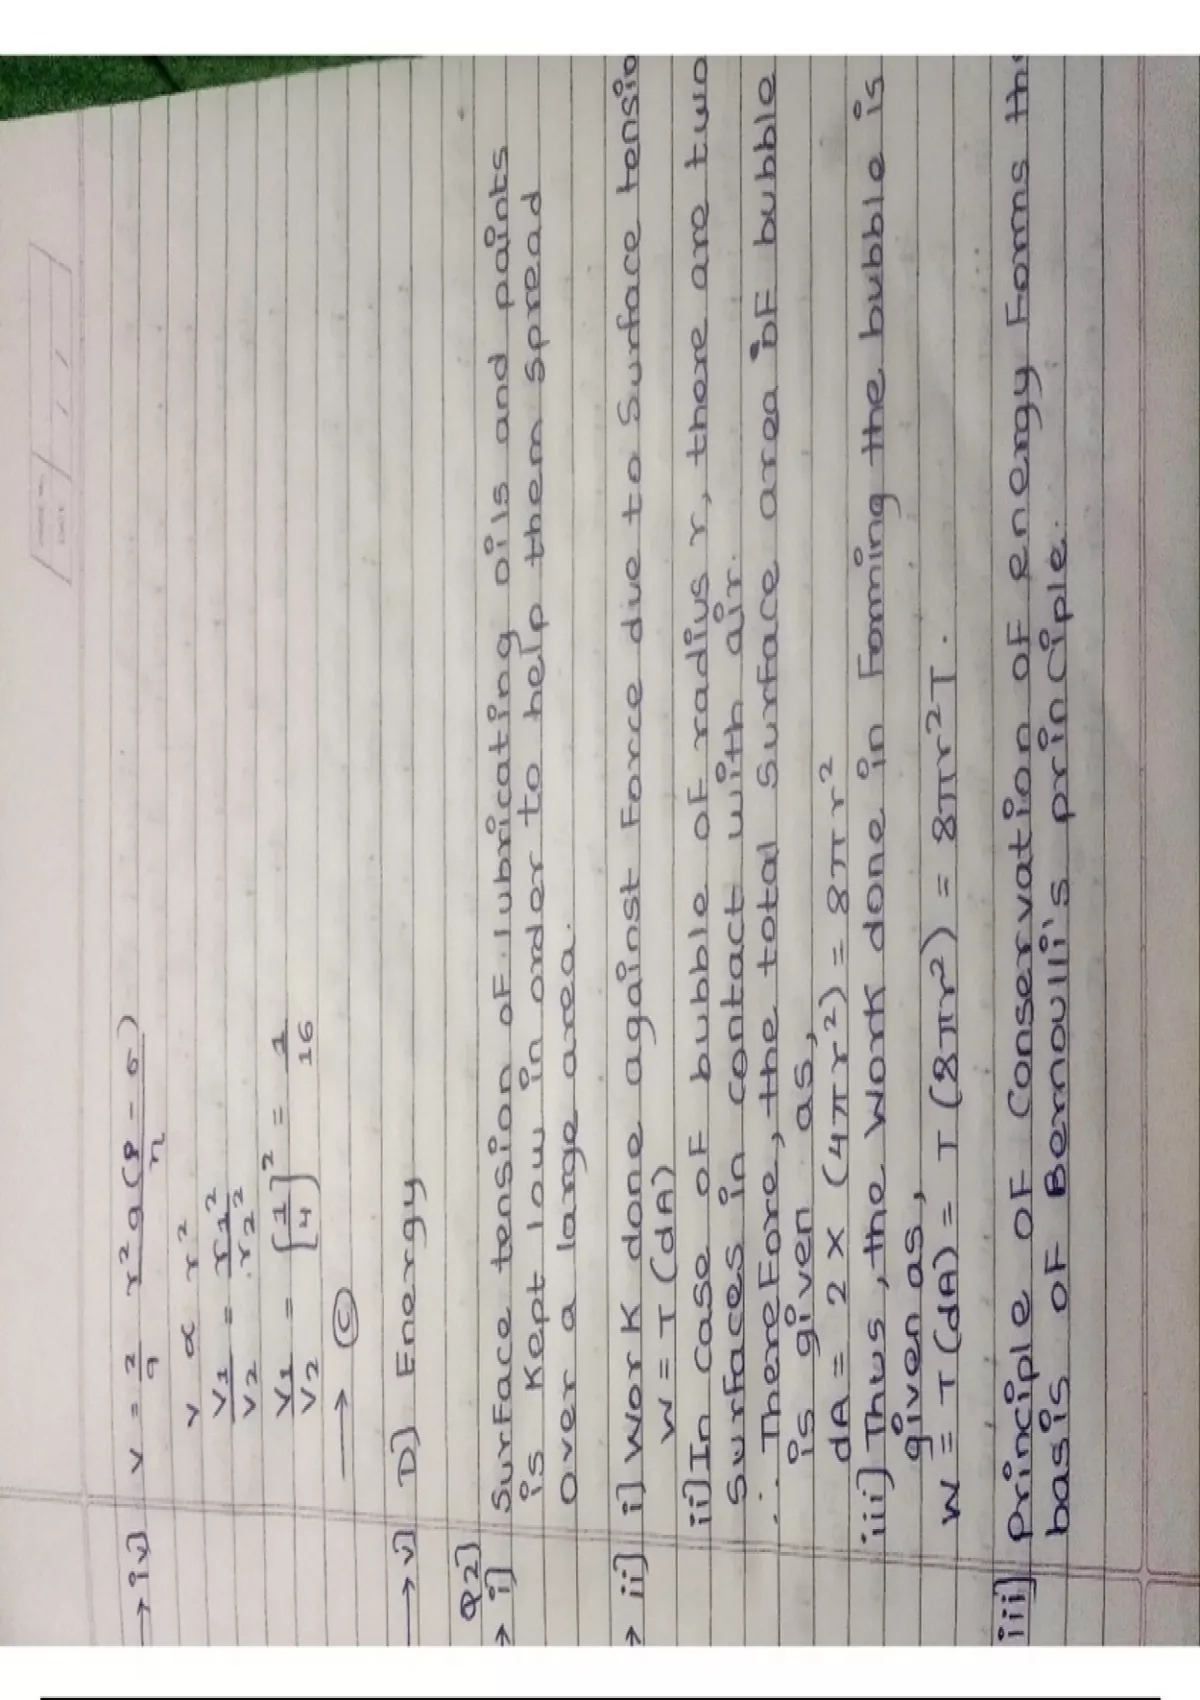 → iv) v = 2/9 r²g(ρ - σ)/η
v ∝ r²
v1/v2 = r1²/r2²
v1/v2 = [1/4]² = 1/16
→ (C)
→ v) D] Energy
Q2]
→ i] Surface tension of lubricating oils and paints
is kept low in order to help them spread
over a large area.
→ ii] i] Work done against force due to surface tensio
W = T (dA)
ii] In case of bubble of radius r, there are two
surfaces in contact with air.
∴ Therefore, the total surface area of bubble
is given as,
dA = 2 × (4πr²) = 8πr²
iii] Thus, the work done in forming the bubble is
given as,
W = T (dA) = T (8πr²) = 8πr²T.
iii] Principle of Conservation of energy forms th
basis of Bernoulli's principle.